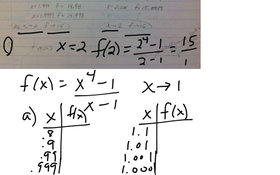 x=2 f(2)=2^4-1/2-1=15/1
f(x)=x^4-1/x-1 x→1
a) x f(x) x f(x)
.8 1.1
.9 1.01
.99 1.001
.999 1.0001